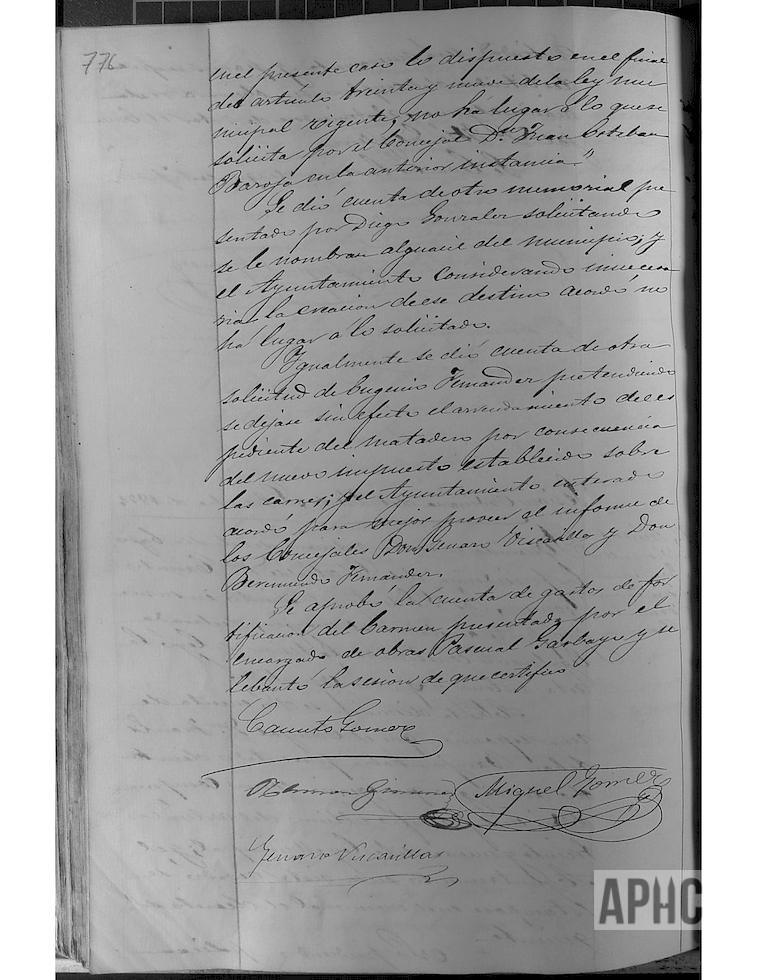 776
en el presente caso lo dispuesto en el final
del artículo treinta y nueve de la ley mu
nicipal vigente, no ha lugar a lo que se
solicita por el Concejal Dn. Juan Esteban
Baroja en la anterior instancia."
Se dió cuenta de otro memorial pre
sentado por Diego Gonzalez solicitando
se le nombrase alguacil del municipio; y
el Ayuntamiento considerando innecesa
ria la creacion de ese destino acordó no
ha lugar a lo solicitado.
Igualmente se dió cuenta de otra
solicitud de Eugenio Fernandez pretendiendo
se dejase sin efecto el arrendamiento del es
pediente del matadero por consecuencia
del nuevo impuesto establecido sobre
las carnes; y el Ayuntamiento enterado
acordó para mejor proveer el informe de
los Concejales Don Genaro Viscasillas y Don
Beremundo Fernandez.
Se aprobó la cuenta de gastos de for
tificacion del Carmen presentada por el
encargado de obras Pascual Garbayo y se
lebantó la sesion de que certifico
Canuto Gomez
Gimenez Miguel Gomez
Genaro Viscasillas
APHC